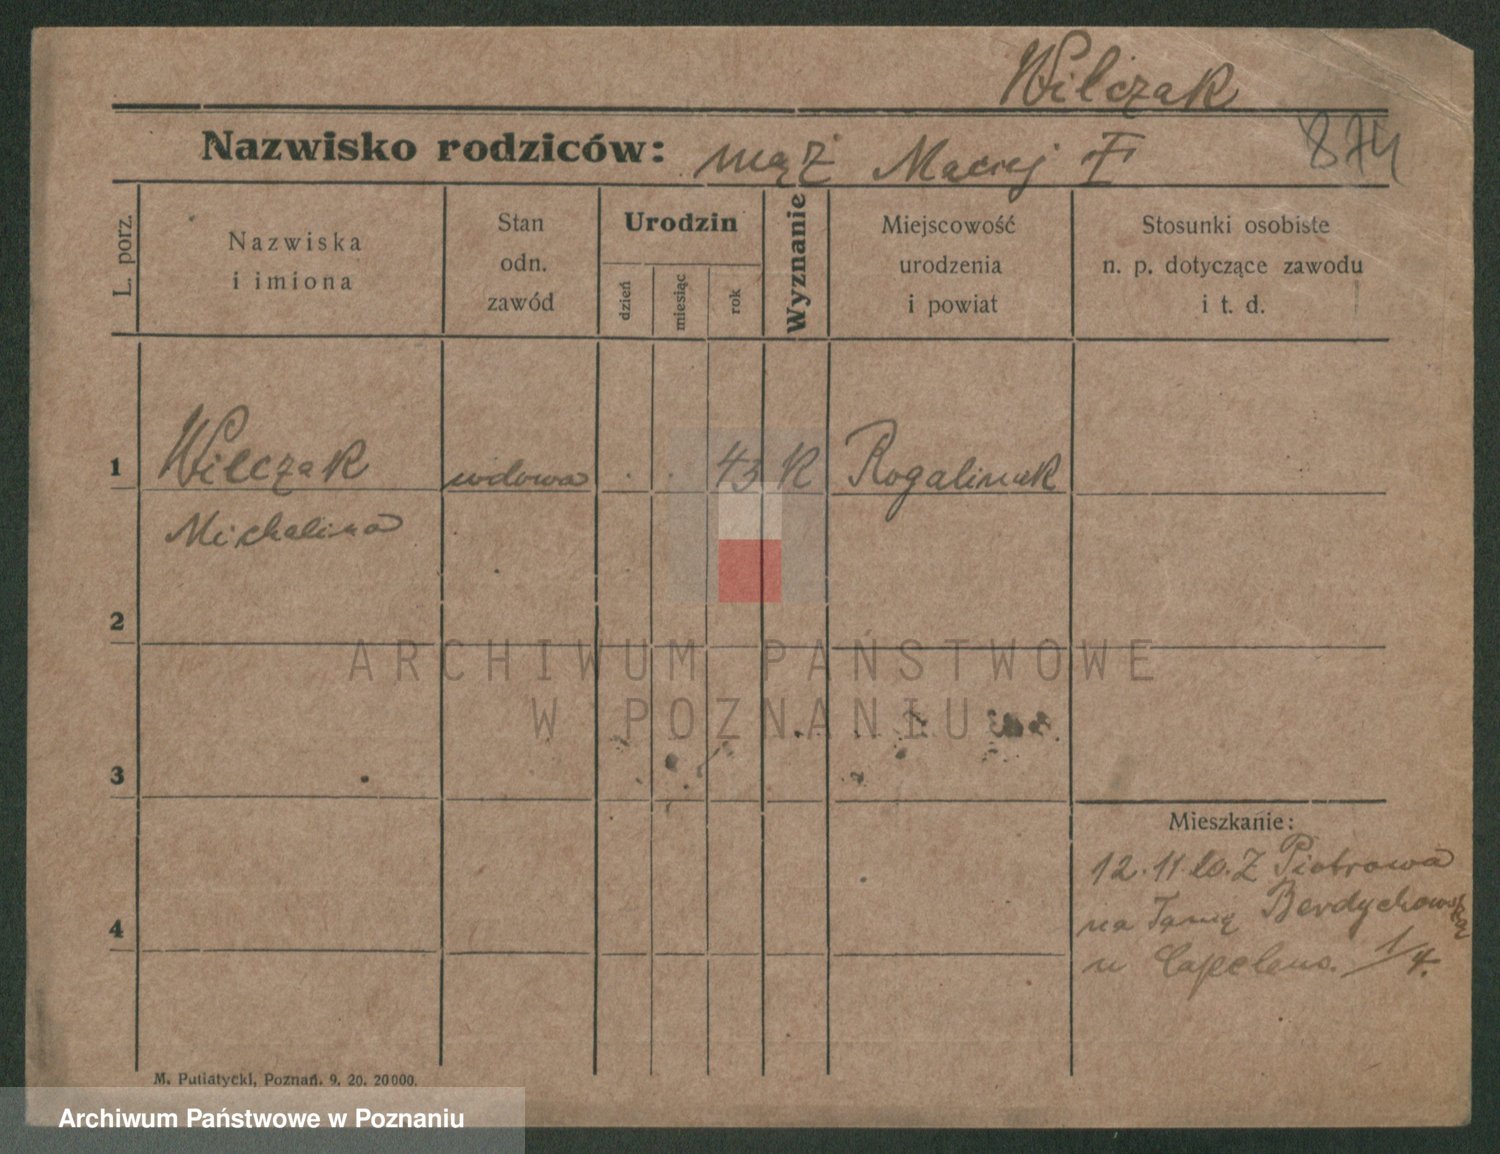 Wilczak
Nazwisko rodziców: mąż Maciej I
874
L. porz.
Nazwiska
i imiona
Stan
odn.
zawód
Urodzin
dzień
miesiąc
rok
Wyznanie
Miejscowość
urodzenia
i powiat
Stosunki osobiste
n. p. dotyczące zawodu
i t. d.
1 Wilczak wdowa . . 43 K Rogalinek
Michalina
2
ARCHIWUM PAŃSTWOWE
W POZNANIU
3
Mieszkanie:
12.11.20. Z Piotrowa
na Tamę Berdychowską
u 1/4.
4
M. Putiatycki, Poznań. 9. 20. 20000.
Archiwum Państwowe w Poznaniu